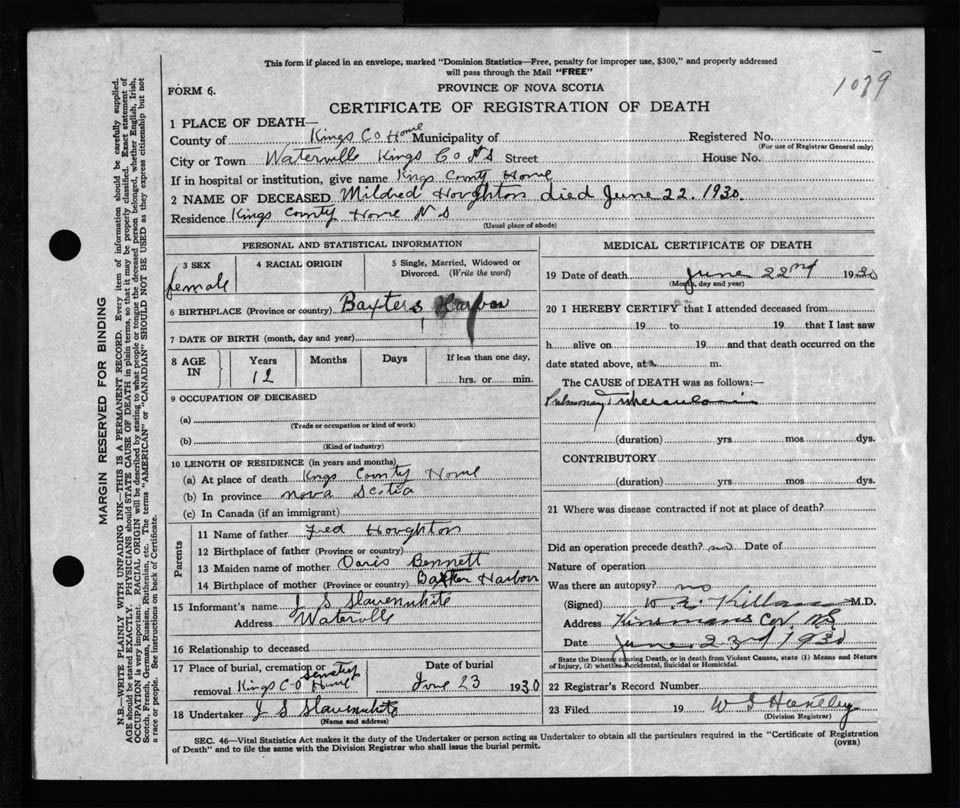 This form if placed in an envelope, marked "Dominion Statistics—Free, penalty for improper use, $300," and properly addressed
will pass through the Mail "FREE"
1079
FORM 6.
PROVINCE OF NOVA SCOTIA
CERTIFICATE OF REGISTRATION OF DEATH
1 PLACE OF DEATH—
County of Kings Co Home Municipality of Registered No.
(For use of Registrar General only)
City or Town Waterville Kings Co N S Street House No.
If in hospital or institution, give name Kings County Home
2 NAME OF DECEASED Mildred Houghton died June 22. 1930.
Residence Kings County Home N S
(Usual place of abode)
PERSONAL AND STATISTICAL INFORMATION
3 SEX 4 RACIAL ORIGIN 5 Single, Married, Widowed or
Divorced. (Write the word)
female
6 BIRTHPLACE (Province or country) Baxters Harbor
7 DATE OF BIRTH (month, day and year)
8 AGE IN Years Months Days If less than one day,
12 hrs. or min.
9 OCCUPATION OF DECEASED
(a)
(Trade or occupation or kind of work)
(b)
(Kind of industry)
10 LENGTH OF RESIDENCE (in years and months)
(a) At place of death Kings County Home
(b) In province Nova Scotia
(c) In Canada (if an immigrant)
Parents
11 Name of father Fred Houghton
12 Birthplace of father (Province or country)
13 Maiden name of mother Doris Bennett
14 Birthplace of mother (Province or country) Baxter Harbor
15 Informant's name J S Slavenwhite
Address Waterville
16 Relationship to deceased
17 Place of burial, cremation or Date of burial
removal Kings C-O Home June 23 1930
18 Undertaker J S Slavenwhite
(Name and address)
MEDICAL CERTIFICATE OF DEATH
19 Date of death June 22nd 1930
(Month, day and year)
20 I HEREBY CERTIFY that I attended deceased from
19 to 19 that I last saw
h alive on 19 and that death occurred on the
date stated above, at m.
The CAUSE OF DEATH was as follows:—
Pulmonary Tuberculosis
(duration) yrs mos dys.
CONTRIBUTORY
(duration) yrs mos dys.
21 Where was disease contracted if not at place of death?
Did an operation precede death? no Date of
Nature of operation
Was there an autopsy? no
(Signed) M.D.
Address
Date June 23rd 1930
State the Disease causing Death, or in death from Violent Causes, state (1) Means and Nature
of Injury, (2) whether Accidental, Suicidal or Homicidal.
22 Registrar's Record Number
23 Filed 19
(Division Registrar)
SEC. 46—Vital Statistics Act makes it the duty of the Undertaker or person acting as Undertaker to obtain all the particulars required in the "Certificate of Registration
of Death" and to file the same with the Division Registrar who shall issue the burial permit.
(OVER)
MARGIN RESERVED FOR BINDING
N.B.—WRITE PLAINLY WITH UNFADING INK—THIS IS A PERMANENT RECORD. Every item of information should be carefully supplied.
AGE should be stated EXACTLY. PHYSICIANS should STATE CAUSE OF DEATH in plain terms, so that it may be properly classified. Exact statement of
OCCUPATION is very important. RACIAL ORIGIN will be described by stating to what people or tongue the deceased person belonged, whether English, Irish,
Scotch, French, German, Russian, Ruthenian, etc. The terms "AMERICAN" or "CANADIAN" SHOULD NOT BE USED as they express citizenship but not
a race or people. See instructions on back of Certificate.